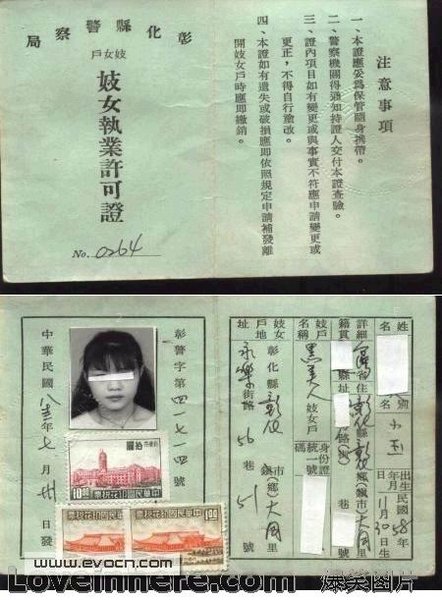 彰化縣警察局
妓女戶
妓女執業許可證
No. 0264
注意事項
一、本證應妥為保管隨身携帶。
二、警察機關得通知持證人交付本證查驗。
三、證內項目如有變更或與事實不符應申請變更或
更正，不得自行塗改。
四、本證如有遺失或破損應即依照規定申請補發離
開妓女戶時應即繳銷。
姓名
別
小玉
出生年月日
民國58年11月30日生
籍貫
詳細住址
彰化
妓女戶名稱
黑美人妓女戶
身份證統一號碼
妓女戶地址
彰化縣彰化市大同里
永樂街56巷51號
彰警字第四一七一四號
中華民國八三年七月卅日發
中華民國印花稅票
10.00
中華民國印花稅票
中華民國印花稅票
1.00
www.evocn.com
Loveinhere.com
爆笑图片